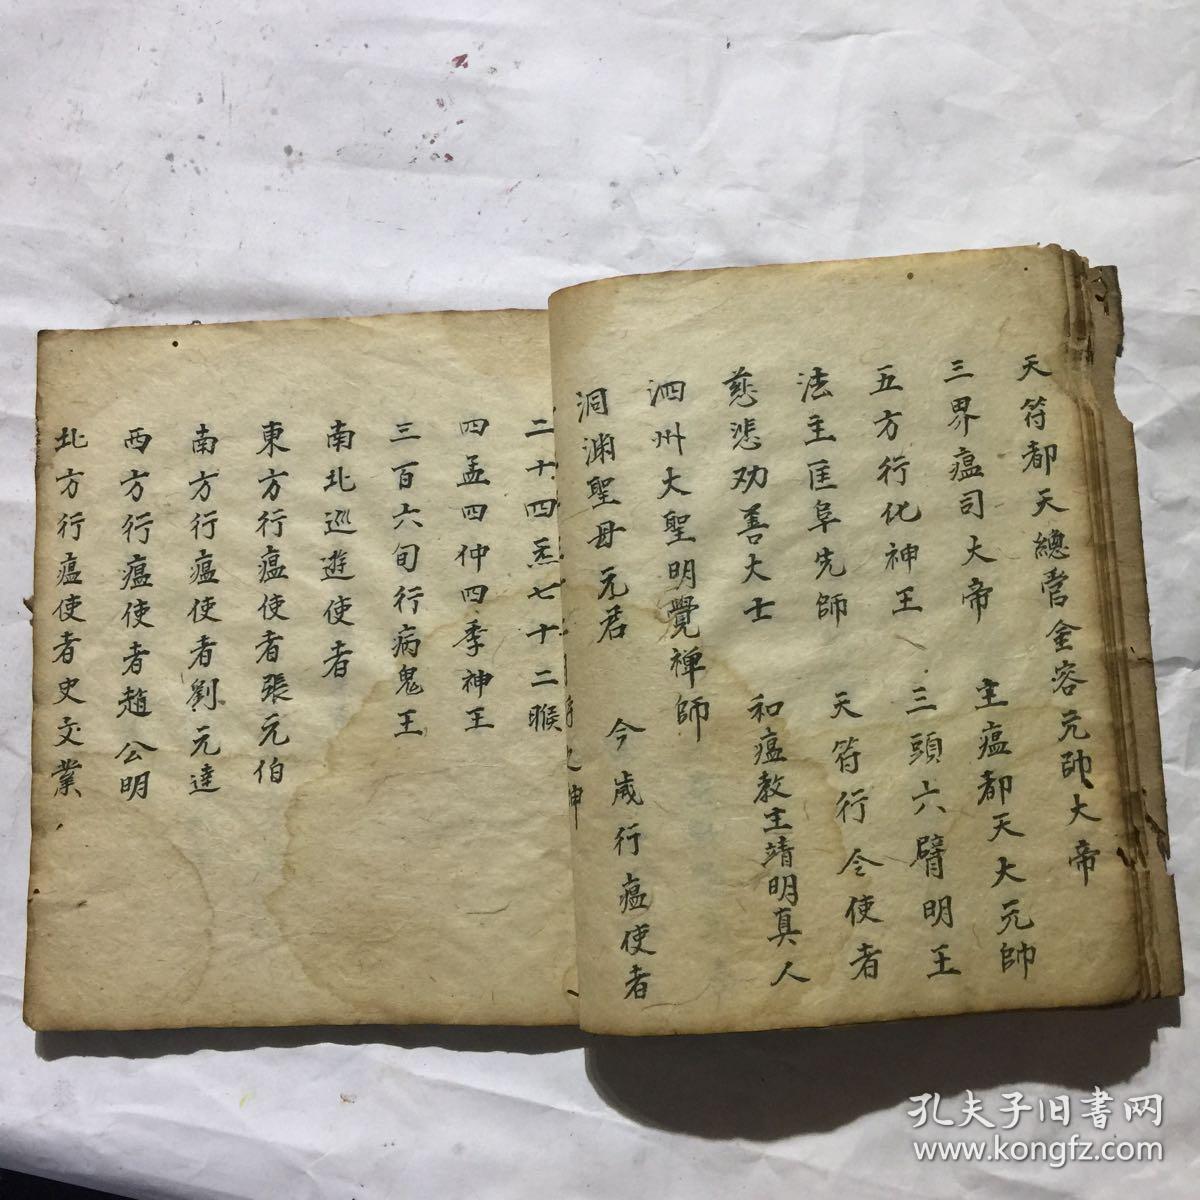 天符都天總管金容元帥大帝
三界瘟司大帝 主瘟都天大元帥
五方行化神王 三頭六臂明王
法主匡阜先師 天符行令使者
慈悲劝善大士 和瘟教主靖明真人
泗州大聖明覺禅師
洞渊聖母元君 今歲行瘟使者
二十四炁七十二睺
四孟四仲四季神王
三百六旬行病鬼王
南北巡遊使者
東方行瘟使者張元伯
南方行瘟使者劉元達
西方行瘟使者趙公明
北方行瘟使者史文業
孔夫子旧書网
www.kongfz.com